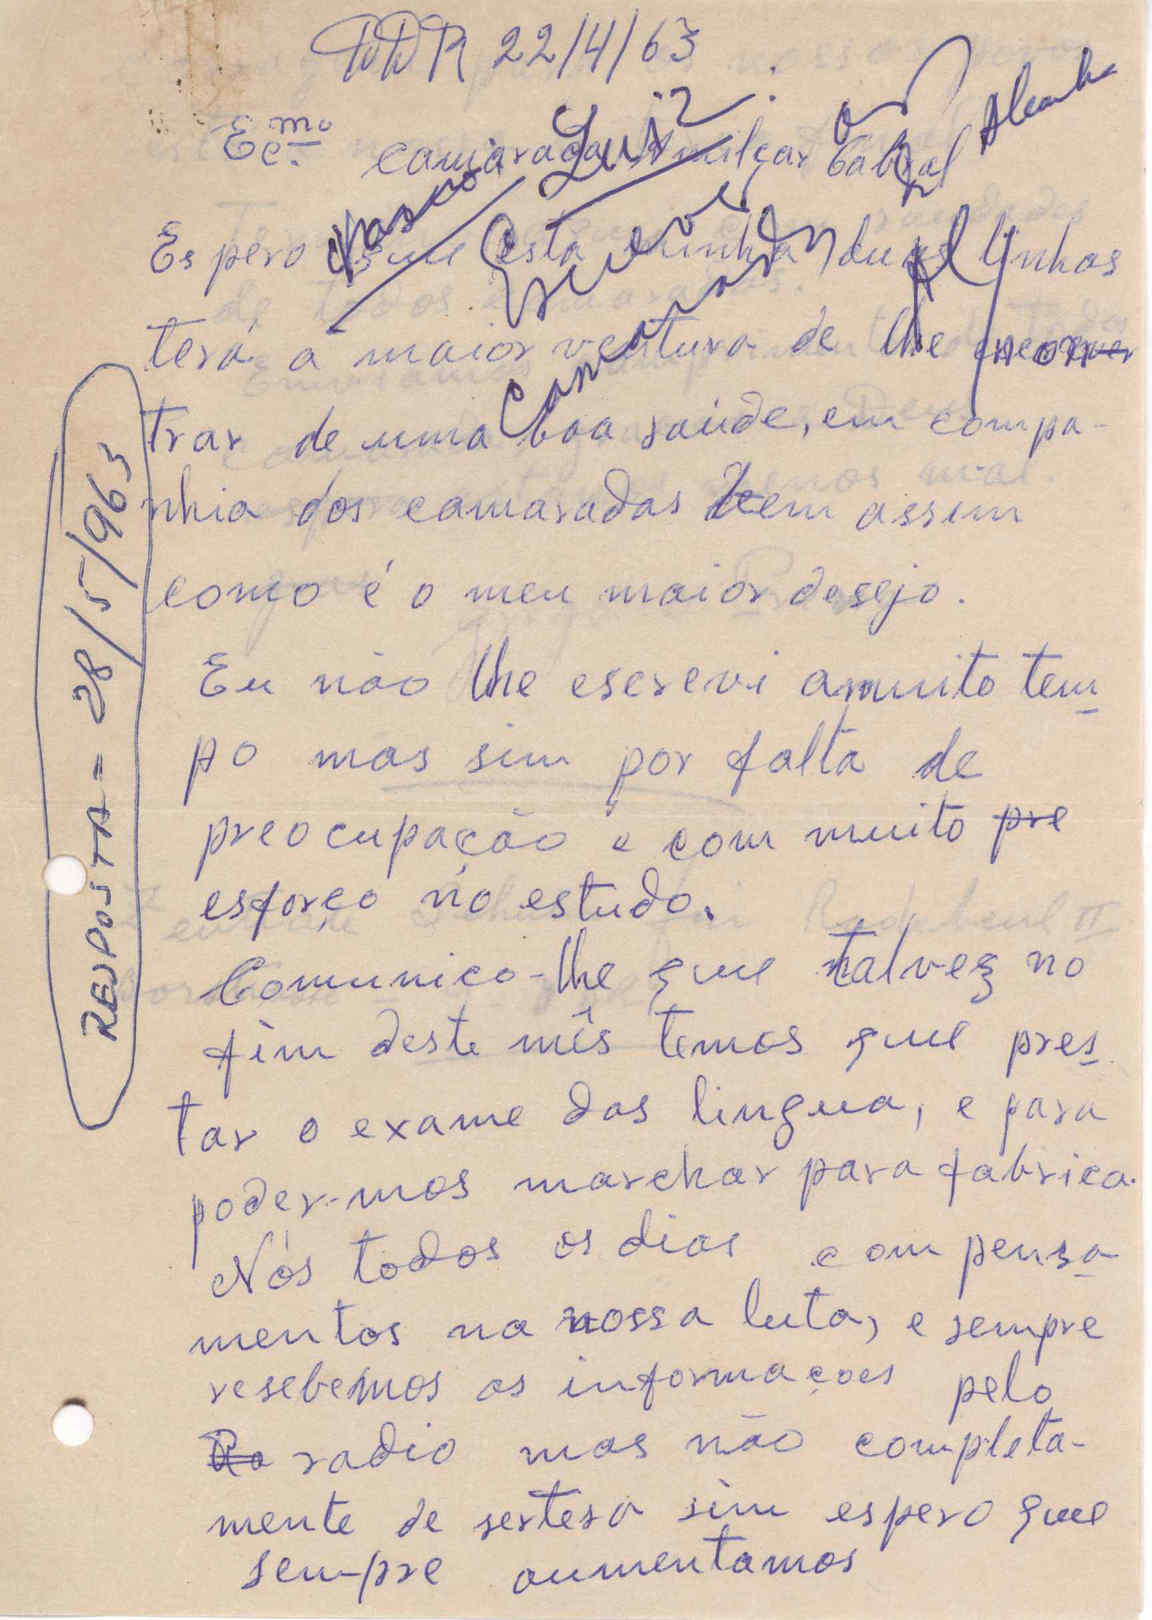 DDR 22/4/63
Ec.mo camarada Amilcar Cabral
Vasco
Luiz
Escrever
aos
Camaradas
Espero que esta minha duas linhas
terá a maior ventura de lhe encon
trar de uma boa saúde, em compa-
nhia dos camaradas bem assim
como é o meu maior desejo.
Eu não lhe escrevi a muito tem
po mas sim por falta de
preocupação e com muito pre
esforço no estudo.
Comunico-lhe que talvez no
fim deste mês temos que pres
tar o exame das lingua, e para
poder-mos marchar para fabrica.
Nós todos os dias com pensa
mentos na nossa luta, e sempre
resebemos as informaçoes pelo
Ra radio mas não completa-
mente de sertesa sim espero que
sempre aumentamos
RESPOSTA = 28/5/963